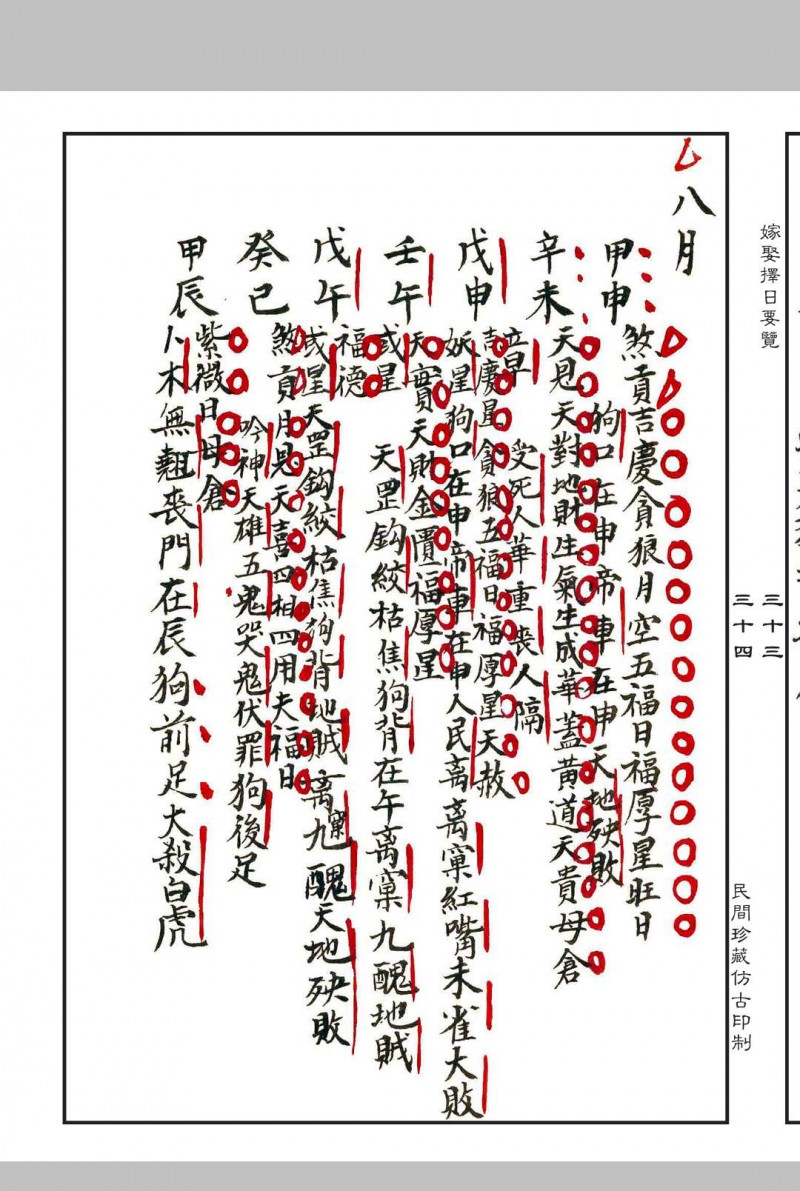 八月
甲申
煞貢吉慶貪狼月空五福日福厚星旺日
狗口在申帝車在申天地殃敗
辛未
天恩天對地財生氣生成華蓋黃道天貴母倉
受死人華重喪人隔
戊申
吉慶星貪狼五福日福厚星天赦
妖星狗口在申帝車在申人民离离窠紅嘴朱雀大敗
壬午
天寶天財金匱福厚星
或星
天罡鈎絞枯焦狗背在午离窠九醜地賊
戊午
福德
或星天罡鈎絞枯焦狗背地賊离窠九醜天地殃敗
癸巳
煞貢月恩天喜四相四用天福日
吟神天雄五鬼哭鬼伏罪狗後足
甲辰
紫微日母倉
卜木無翹喪門在辰狗前足大殺白虎
嫁娶擇日要覽
三十三
三十四
民間珍藏仿古印制